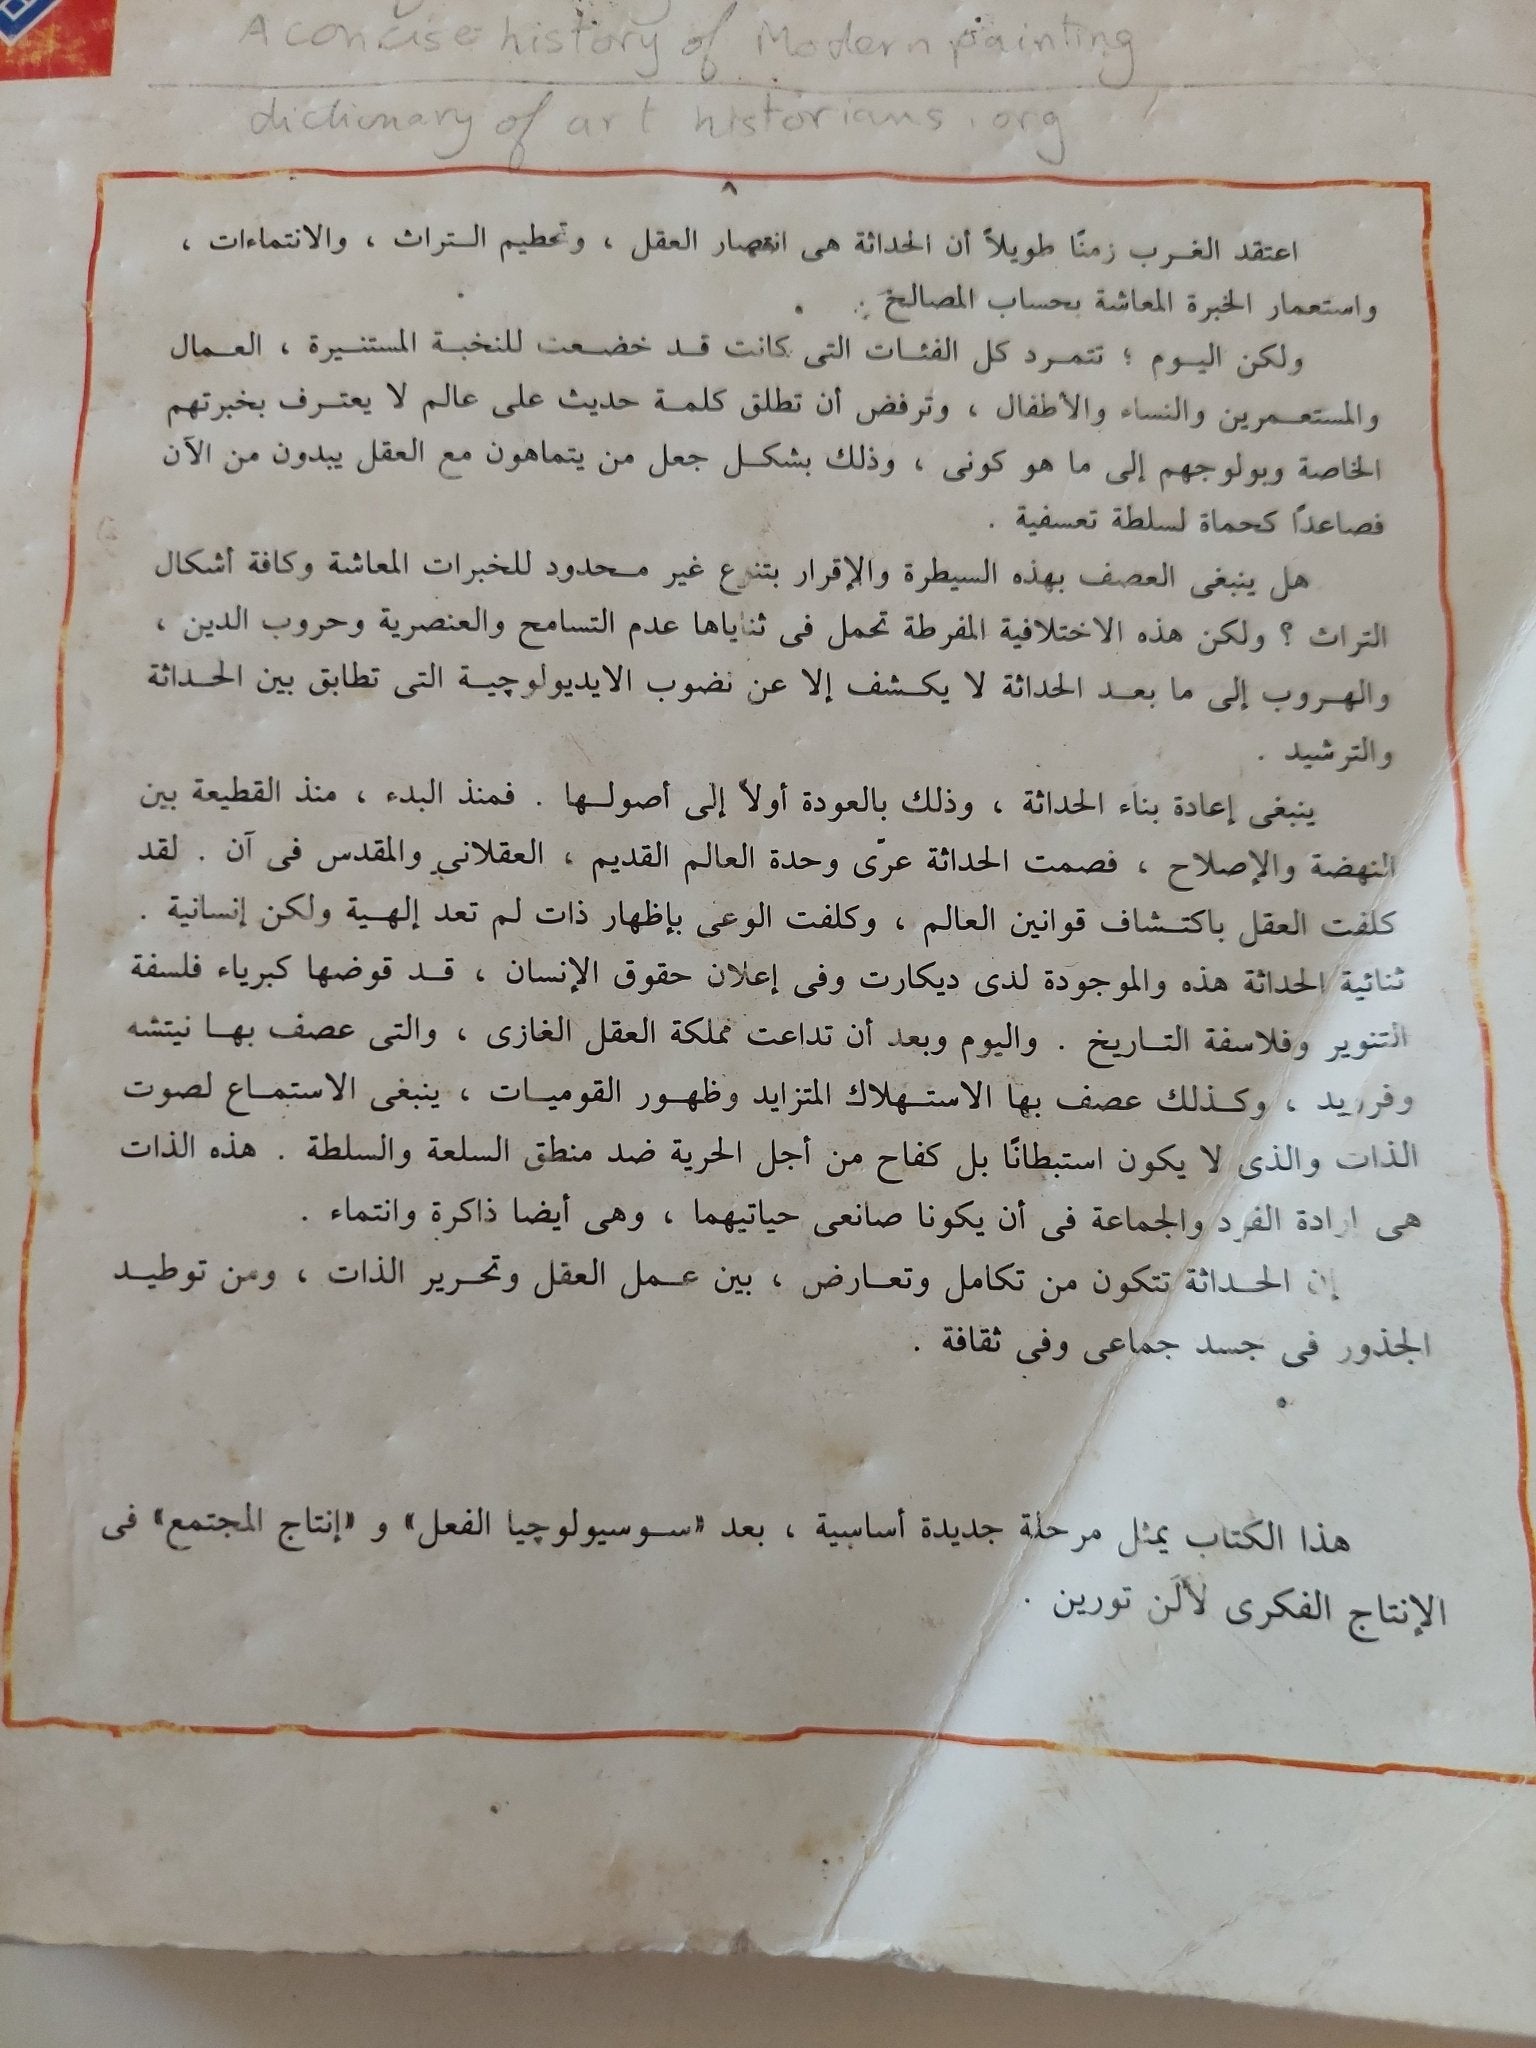 A concise history of Modern painting
dictionary of art historians.org
اعتقد الغرب زمنًا طويلاً أن الحداثة هى انتصار العقل ، وتحطيم التراث ، والانتماءات ،
واستعمار الخبرة المعاشة بحساب المصالح .
ولكن اليوم ؛ تتمرد كل الفئات التى كانت قد خضعت للنخبة المستنيرة ، العمال
والمستعمرين والنساء والأطفال ، وترفض أن تطلق كلمة حديث على عالم لا يعترف بخبرتهم
الخاصة وبولوجهم إلى ما هو كونى ، وذلك بشكل جعل من يتماهون مع العقل يبدون من الآن
فصاعدًا كحماة لسلطة تعسفية .
هل ينبغى العصف بهذه السيطرة والإقرار بتنوع غير محدود للخبرات المعاشة وكافة أشكال
التراث ؟ ولكن هذه الاختلافية المفرطة تحمل فى ثناياها عدم التسامح والعنصرية وحروب الدين ،
والهروب إلى ما بعد الحداثة لا يكشف إلا عن نضوب الايديولوچية التى تطابق بين الحداثة
والترشيد .
ينبغى إعادة بناء الحداثة ، وذلك بالعودة أولاً إلى أصولها . فمنذ البدء ، منذ القطيعة بين
النهضة والإصلاح ، فصمت الحداثة عرّى وحدة العالم القديم ، العقلاني والمقدس فى آن . لقد
كلفت العقل باكتشاف قوانين العالم ، وكلفت الوعى بإظهار ذات لم تعد إلهية ولكن إنسانية .
ثنائية الحداثة هذه والموجودة لدى ديكارت وفى إعلان حقوق الإنسان ، قد قوضها كبرياء فلسفة
التنوير وفلاسفة التاريخ . واليوم وبعد أن تداعت مملكة العقل الغازى ، والتى عصف بها نيتشه
وفرويد ، وكذلك عصف بها الاستهلاك المتزايد وظهور القوميات ، ينبغى الاستماع لصوت
الذات والذى لا يكون استبطانًا بل كفاح من أجل الحرية ضد منطق السلعة والسلطة . هذه الذات
هى ارادة الفرد والجماعة فى أن يكونا صانعى حياتيهما ، وهى أيضا ذاكرة وانتماء .
إن الحداثة تتكون من تكامل وتعارض ، بين عمل العقل وتحرير الذات ، ومن توطيد
الجذور فى جسد جماعى وفى ثقافة .
هذا الكتاب يمثل مرحلة جديدة أساسية ، بعد «سوسيولوچيا الفعل» و «إنتاج المجتمع» فى
الإنتاج الفكرى لألَن تورين .